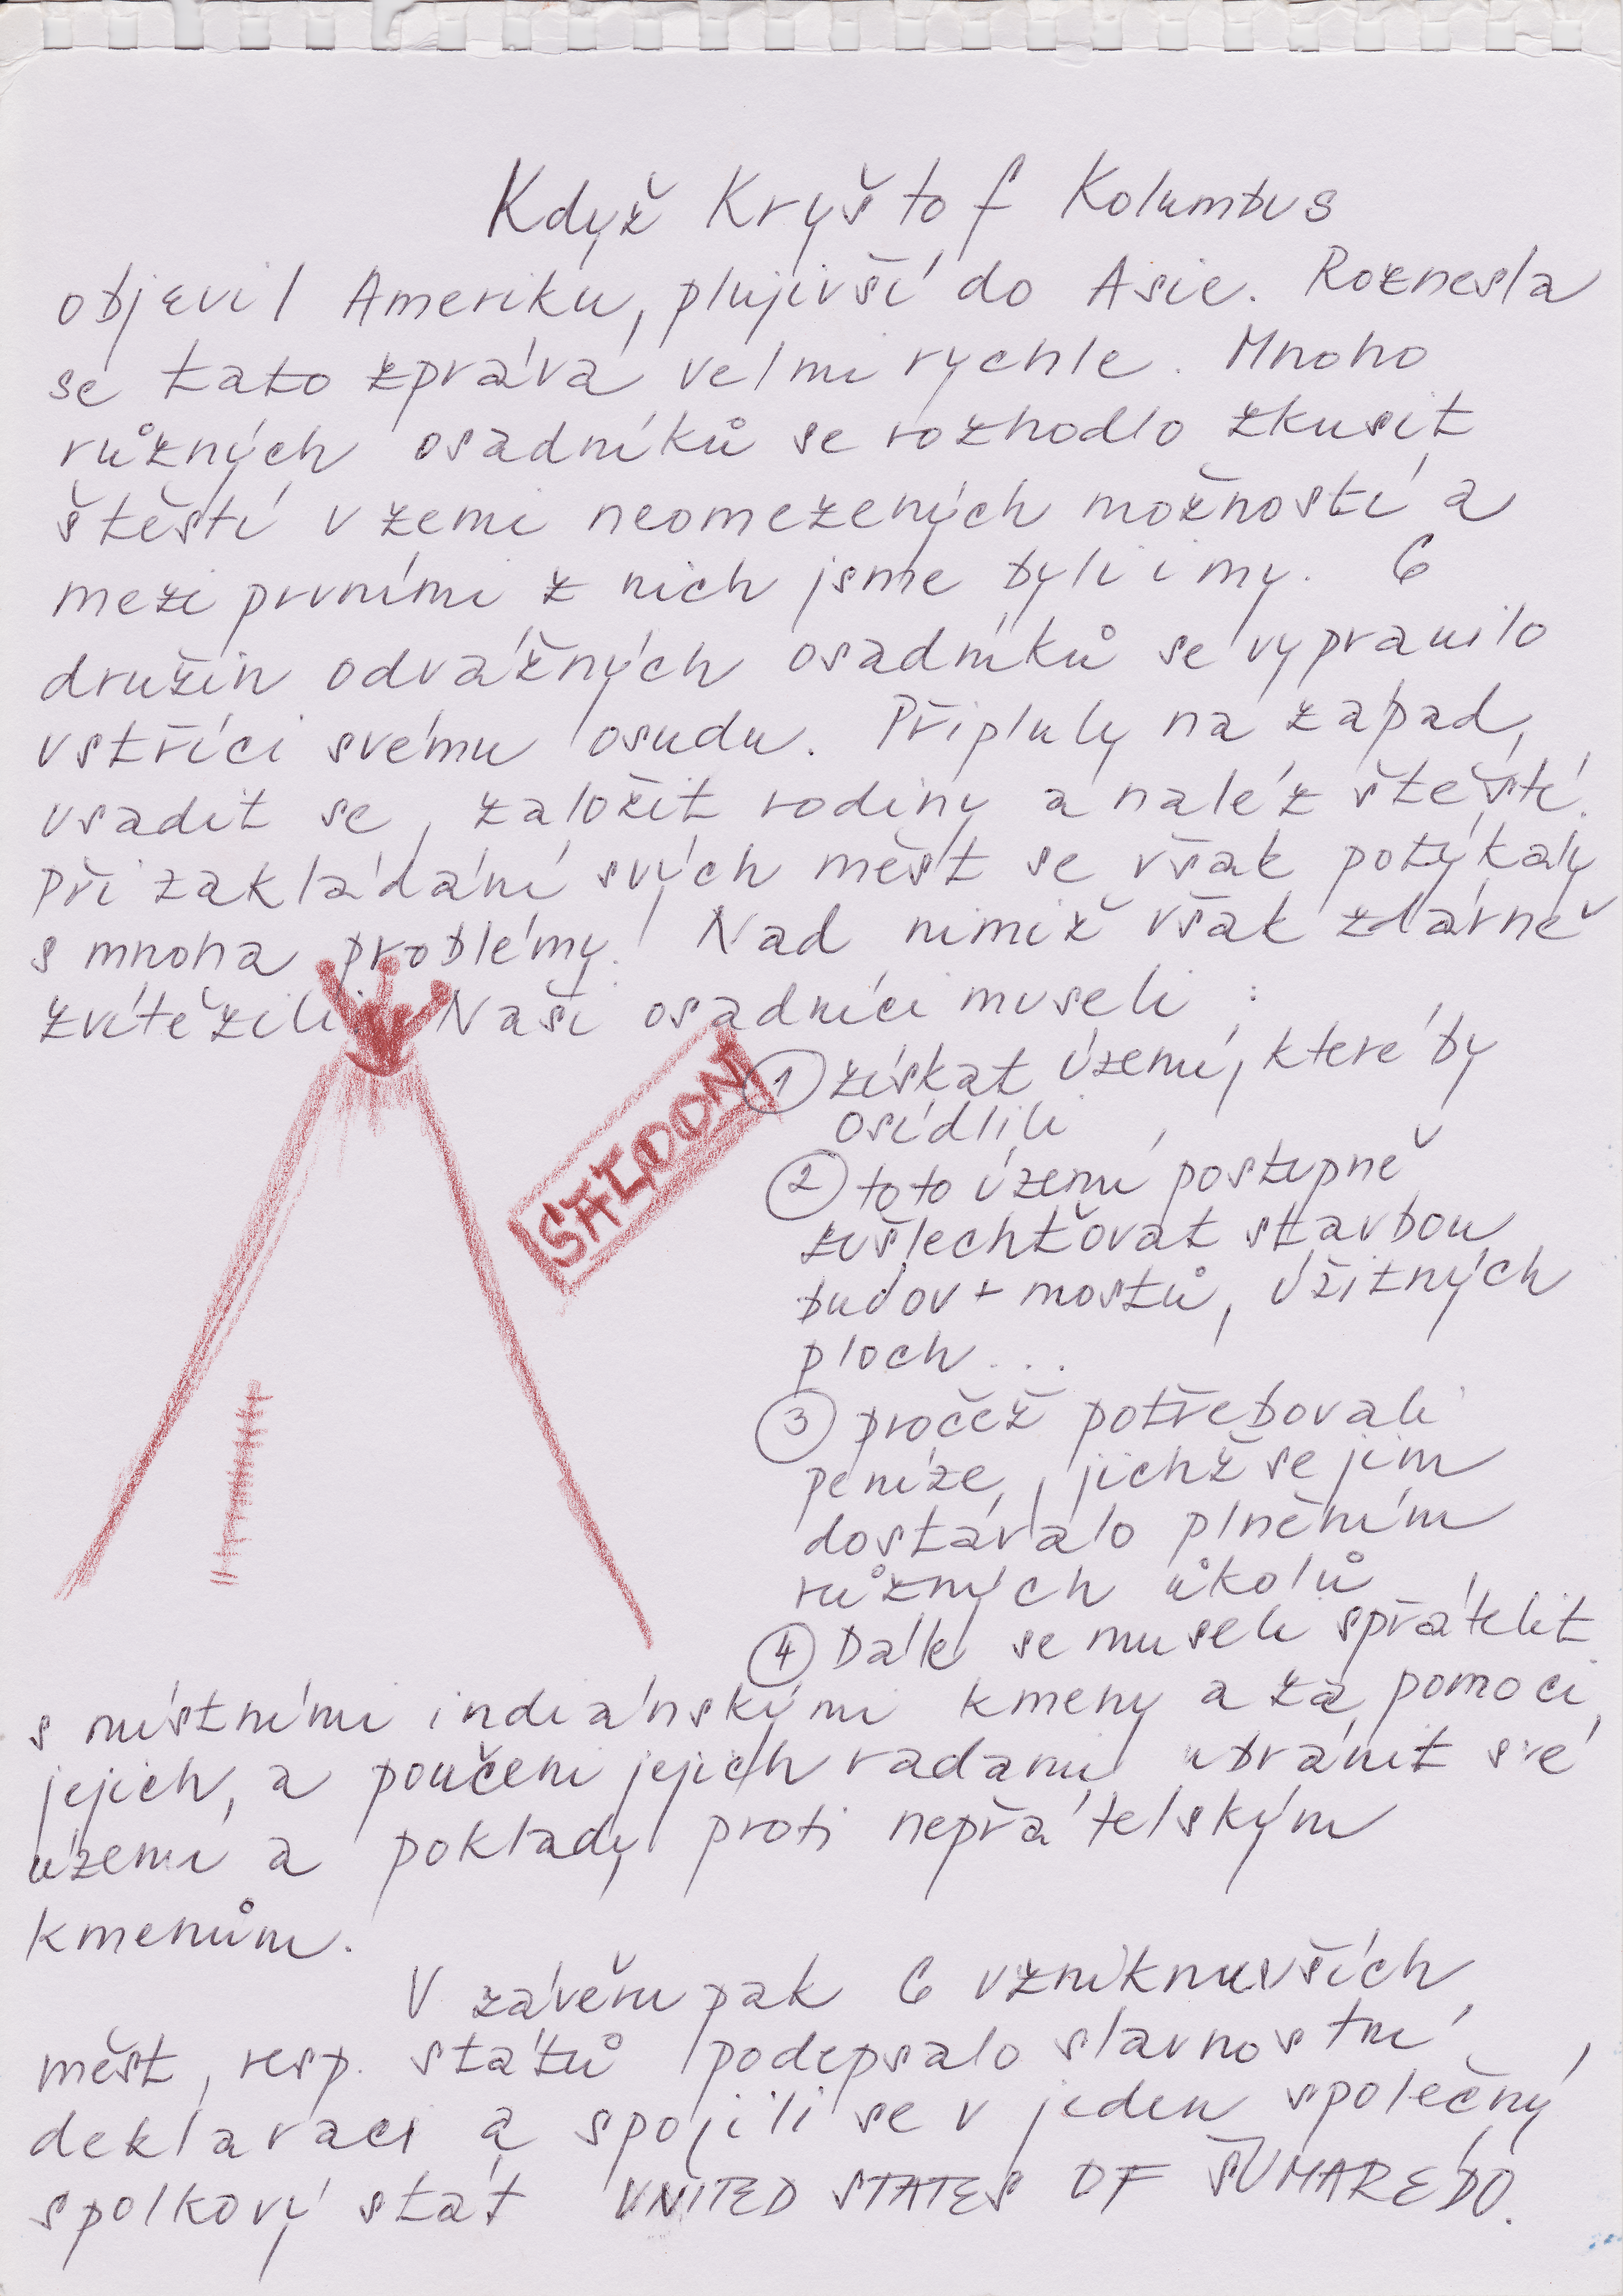 Když Kryštof Kolumbus
objevil Ameriku, plujivší do Asie. Roznesla
se tato zpráva velmi rychle. Mnoho
různých osadníků se rozhodlo zkusit
štěstí v zemi neomezených možností a
mezi prvními z nich jsme byli i my. 6
družin odvážných osadníků se vypravilo
vstříci svému osudu. Připluly na západ,
usadit se, založit rodiny a naléz štěstí.
Při zakládání svých měst se však potýkaly
s mnoha problémy. Nad nimiž však zdárně
zvítězili. Naši osadníci museli :
SALOON
1 získat území, které by
osídlili
2 toto území postupně
zušlechťovat stavbou
budov + mostů, úžitných
ploch...
3 pročež potřebovali
peníze, jichž se jim
dostávalo plněním
různých úkolů
4 Dále se museli spřátelit
s místními indiánskými kmeny a za pomoci
jejich, a poučeni jejich radami ubránit své
území a poklady proti nepřátelským
kmenům.
V závěru pak 6 vzniknuvších
měst, resp. států podepsalo slavnostní
deklaraci a spojili se v jeden společný
spolkový stát UNITED STATES OF ŠUMAREDO.